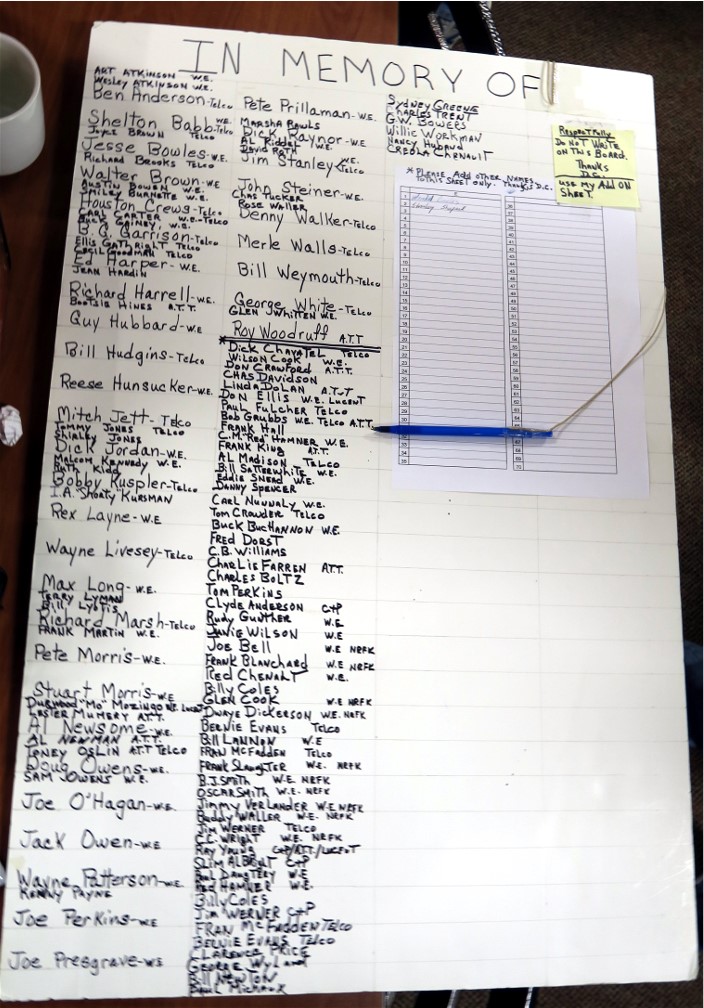 IN MEMORY OF
ART ATKINSON W.E.
Wesley ATKINSON W.E.
Ben Anderson-Telco
Shelton Babb W.E.
Joyce BROWN TELCO
Jesse Bowles-W.E.
Richard BROOKS TELCO
Walter Brown-WE
AUSTIN BOWEN W.E.
SMILEY BURNETTE W.E.
Houston Crews-Telco
CARL CARTER W.E.-TELCO
BUCK GAINEY, W.E.
B.G. Garrison-Telco
Ellis GATHRIGHT TELCO
CECIL GOODMAN TELCO
Ed Harper-W.E.
JEAN HARDIN
Richard Harrell-W.E.
BOOTSIE HINES A.T.T.
Guy Hubbard-W.E
Bill Hudgins-Telco
Reese Hunsucker-W.E.
Mitch Jett-Telco
TOMMY JONES TELCO
SHIRLEY JONES
Dick Jordan-W.E.
MALCOM KENNEDY W.E.
RUTH KIDD
Bobby Kuspler-Telco
I.A. "SHORTY" KURSMAN
Rex Layne-W.E
Wayne Livesey-Telco
Max Long-W.E.
TERRY LYMAN
BILL
Richard Marsh-Telco
FRANK MARTIN W.E.
Pete Morris-W.E.
Stuart Morris-W.E
DURWOOD "MO" MOZINGO W.E. LUCENT
LESTER MUMERY A.T.T.
Al Newsome-W.E.
AL NEWMAN A.T.T.
TONEY OSLIN A.T.T TELCO
Doug Owens-W.E.
SAM JOWENS W.E.
Joe O'Hagan-W.E.
Jack Owen-W.E
Wayne Patterson-W.E.
KENNY PAYNE
Joe Perkins-W.E
Joe Presgrave-WS
Pete Prillaman-W.E.
MARSHA RAWLS
Dick Raynor-W.E.
AL RIDDEL
DAVID ROTH
Jim Stanley W.E. TELCO
John Steiner-W.E.
CHAS TUCKER
ROSE WALLER
Denny Walker-Telco
Merle Walls-Telco
Bill Weymouth-Telco
George White-Telco
GLEN WHITTEN W.E.
* Roy Woodruff A.T.T
DICK CHAVATEL TELCO
WILSON COOK W.E.
DON CRAWFORD A.T.T.
CHAS DAVIDSON
LINDA DOLAN A.T.&T
DON ELLIS W.E. LUCENT
PAUL FULCHER TELCO
BOB GRUBBS W.E. TELCO A.T.T.
FRANK Hall
C.M. "Red" HAMNER W.E.
FRANK KING A.T.T.
AL MADISON TELCO
Bill SATTERWHITE W.E.
EDDIE SNEAD W.E.
DANNY SPENCER
CARL NUNNALY W.E.
TOM CROWDER TELCO
BUCK BUCHANNON W.E.
FRED DORST
C.B. WILLIAMS
CHARLIE FARREN A.T.T.
CHARLES BOLTZ
TOM PERKINS
CLYDE ANDERSON C+P
RUDY GUNTHER W.E
JANIE WILSON W.E
JOE BELL W.E NRFK
FRANK BLANCHARD W.E NRFK
RED CHENALT W.E.
BILLY COLES
GLEN COOK W.E NRFK
DWAYE DICKERSON W.E. NRFK
BERNIE EVANS TELCO
BILL LANNON W.E
FRAN MCFADDEN TELCO
FRANK SLAUGHTER W.E. NRFK
B.J. SMITH W.E. NRFK
OSCAR SMITH W.E. NRFK
JIMMY VERLANDER W.E NRFK
BUDDY WALLER W.E. NRFK
JIM WERNER TELCO
C.C. WRIGHT W.E. NRFK
RAY YOUNG C+P/ATT./LUCENT
SLIM ALBRUT C+P
PAUL DAUGTERY W.E
RED HAMNER W.E.
BILLY COLES
JIM WERNER C+P
FRAN MCFADDEN TELCO
BERNIE EVANS TELCO
CLARENCE PRICE
GEORGE WYLAND
BILL NEWTON
PAUL
SYDNEY GREENE
CHARLES TRENT
G.W. BOWERS
WILLIE WORKMAN
NANCY
CREOLA CHENAULT
* PLEASE ADD OTHER NAMES
TO THIS SHEET ONLY. THANKS D.C.
RESPECTFULLY
DO NOT WRITE
ON THIS BOARD.
THANKS
D.C.
USE MY ADD ON
SHEET.